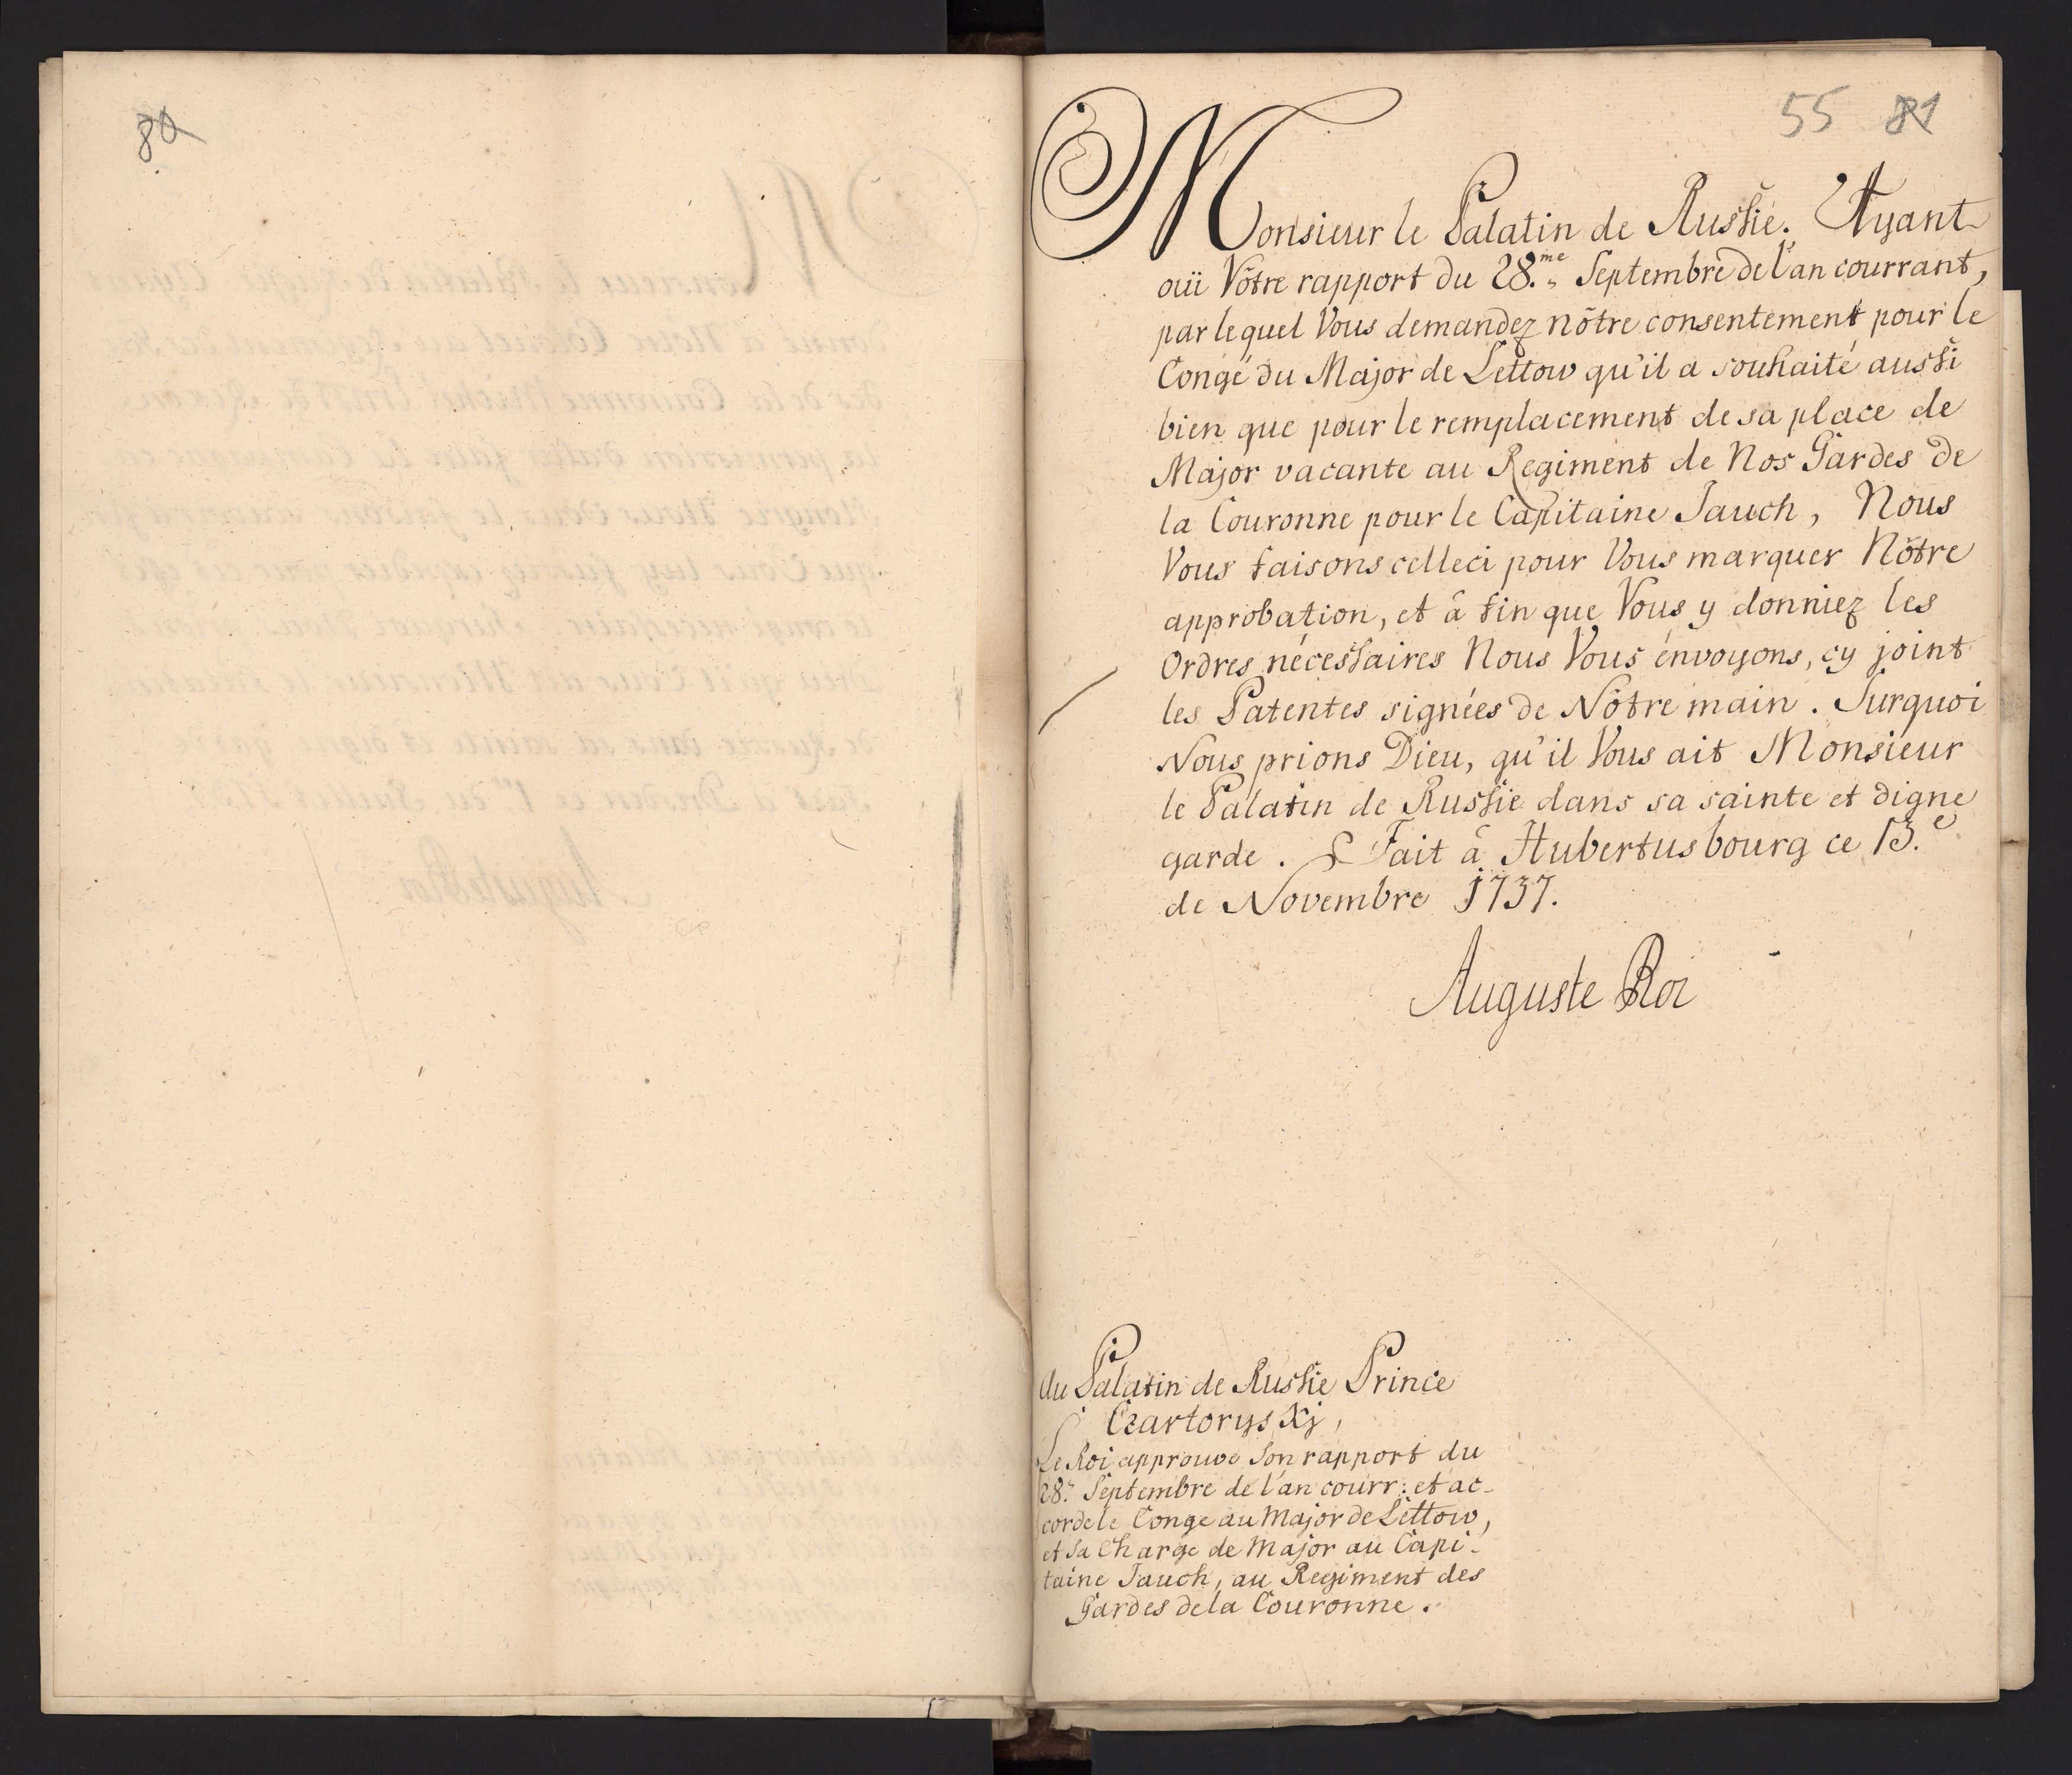 80
55 81
Monsieur le Palatin de Russie. Ayant
oüi Vôtre rapport du 28.me Septembre de l'an courrant,
par lequel Vous demandez nôtre consentement pour le
Congé du Major de Lettow qu'il a souhaité aussi
bien que pour le remplacement de sa place de
Major vacante au Regiment de Nos Gardes de
la Couronne pour le Capitaine Jauch, Nous
Vous faisons celleci pour Vous marquer Nôtre
approbation, et â fin que Vous y donniez les
Ordres nécessaires Nous Vous énvoyons, cy joint
les Patentes signées de Nôtre main. Surquoi
Nous prions Dieu, qu'il Vous ait Monsieur
le Palatin de Russie dans sa sainte et digne
garde. Fait â Hubertusbourg ce 13.e
de Novembre 1737.
Auguste Roi
Au Palatin de Russie Prince
Czartoryskj,
Le Roi approuve Son rapport du
28. Septembre de l'an courr: et ac-
corde le Conge au Major de Lettow,
et sa Charge de Major au Capi-
taine Jauch, au Regiment des
Gardes de la Couronne.